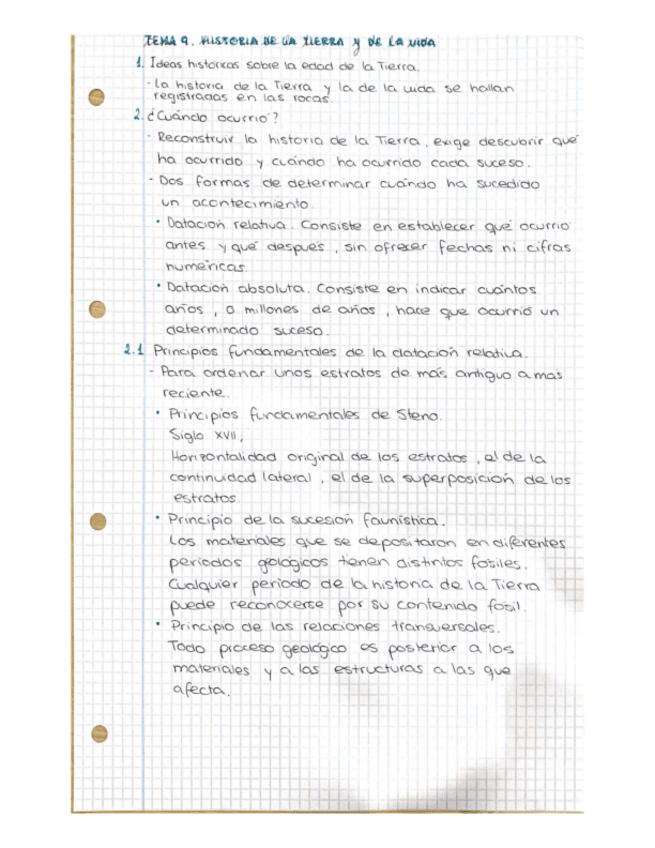 TEMA 9. HISTORIA DE LA TIERRA Y DE LA VIDA
1. Ideas históricas sobre la edad de la Tierra.
- La historia de la Tierra y la de la vida se hallan
registradas en las rocas.
2. ¿Cuándo ocurrió?
- Reconstruir la historia de la Tierra, exige descubrir qué
ha ocurrido y cuándo ha ocurrido cada suceso.
- Dos formas de determinar cuándo ha sucedido
un acontecimiento.
• Datación relativa. Consiste en establecer qué ocurrió
antes y qué después, sin ofrecer fechas ni cifras
numéricas.
• Datación absoluta. Consiste en indicar cuántos
años, o millones de años, hace que ocurrió un
determinado suceso.
2.1 Principios fundamentales de la datación relativa.
- Para ordenar unos estratos de más antiguo a mas
reciente.
• Principios fundamentales de Steno.
Siglo XVII;
Horizontalidad original de los estratos, el de la
continuidad lateral, el de la superposición de los
estratos.
• Principio de la sucesión faunística.
Los materiales que se depositaron en diferentes
períodos geológicos tienen distintos fósiles.
Cualquier período de la historia de la Tierra
puede reconocerse por su contenido fósil.
• Principio de las relaciones transversales.
Todo proceso geológico es posterior a los
materiales y a las estructuras a las que
afecta.